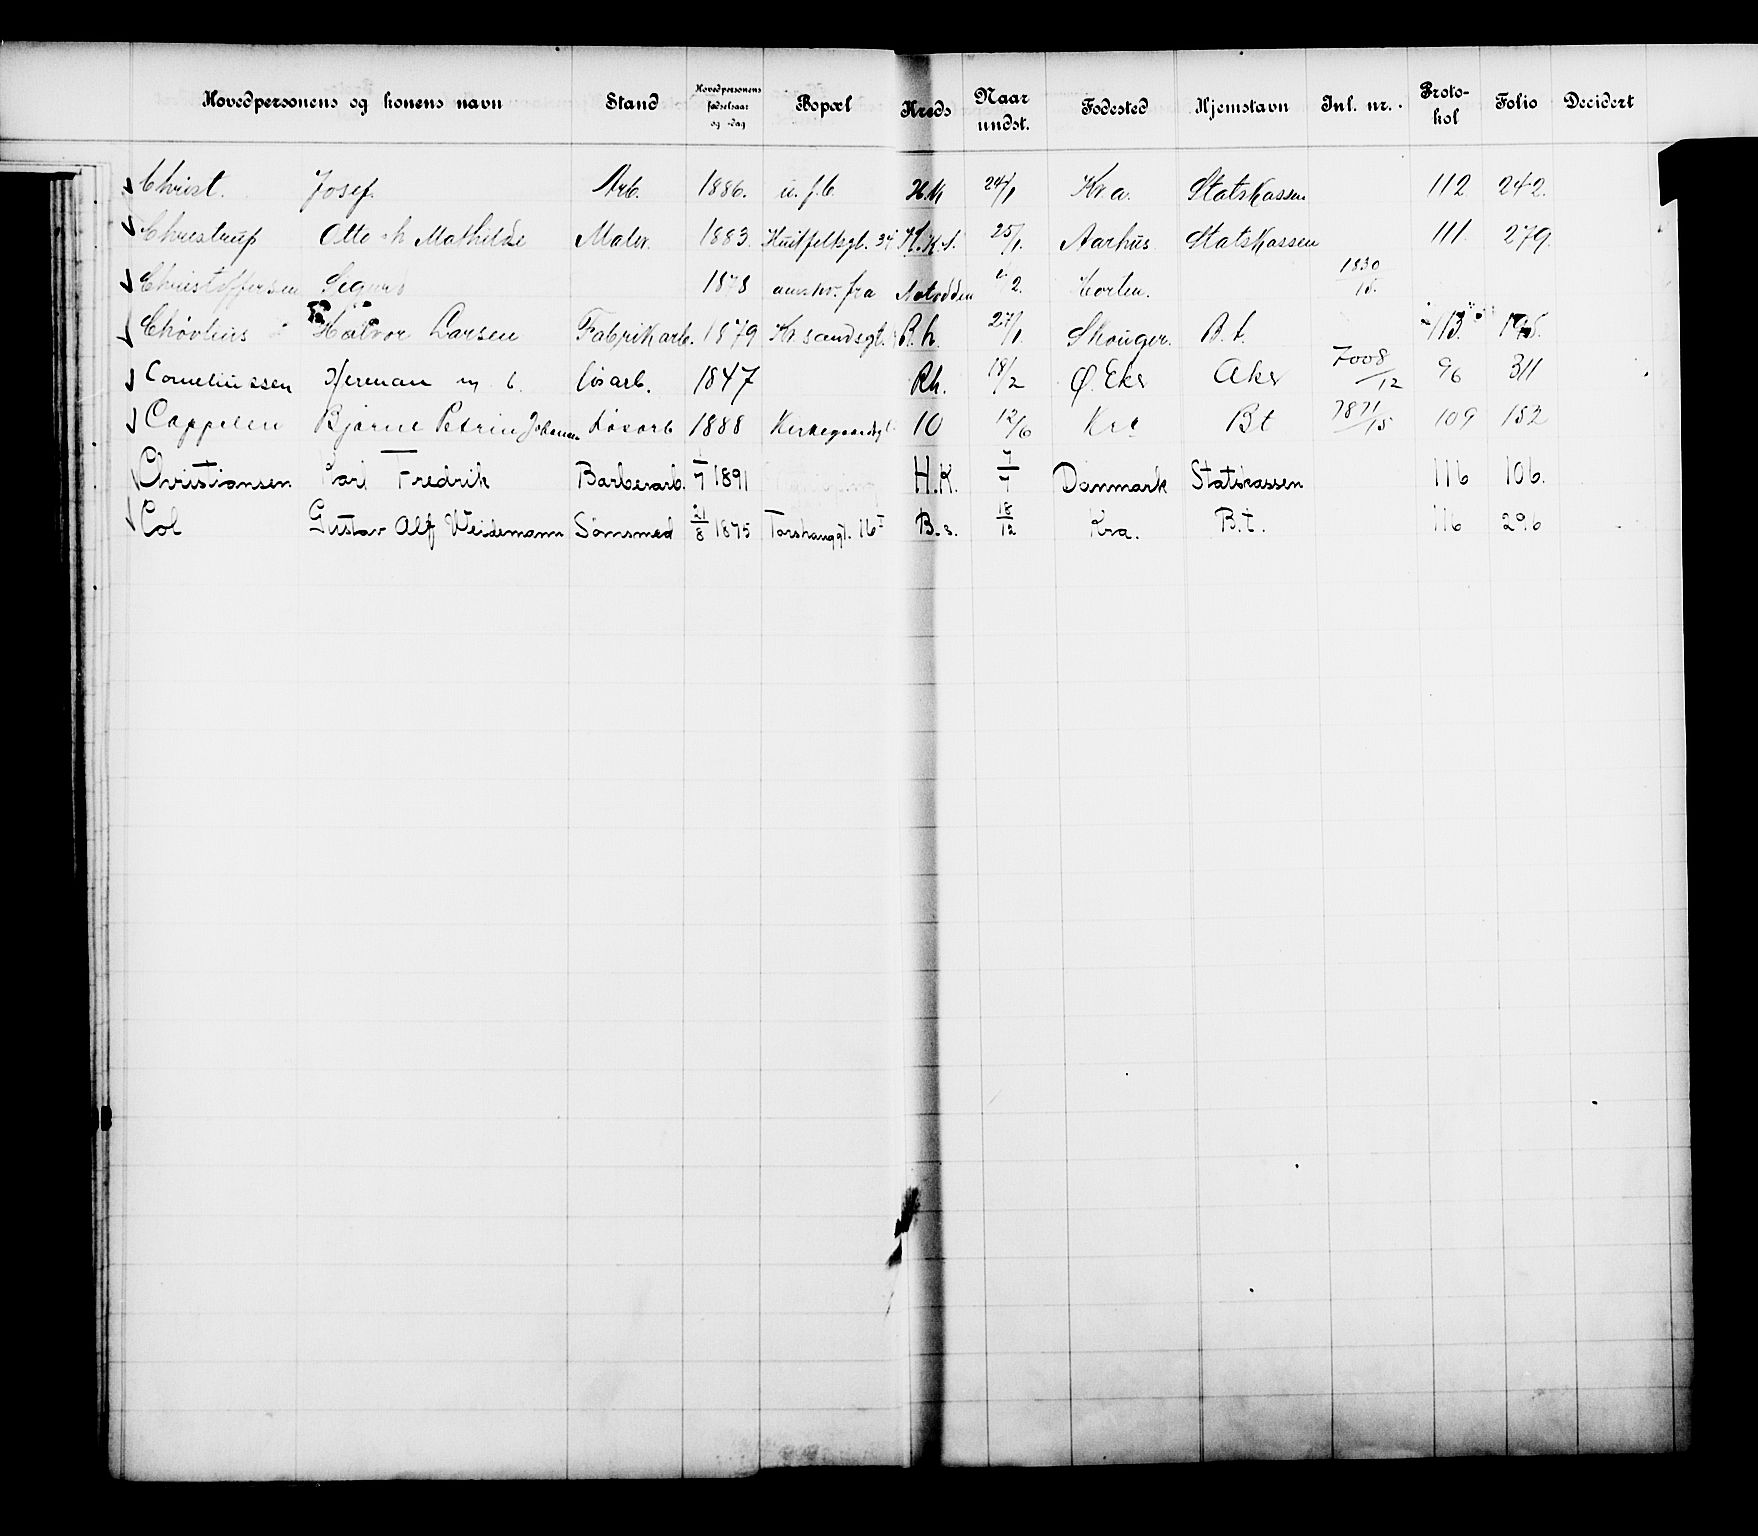 Hovedpersonens og konens navn Stand Hovedpersonens fødselsaar og -dag Bopæl Kreds Naar undst. Fødested Hjemstavn Inl. nr. Proto-kol Folio Decidert
Christ. Josef. Arb. 1886. u. f. b. H.K 24/1 Kra. Statskassen 112 242.
Chrestrup Otto h Mathilde Maler. 1883. Huitfeltsgt. 34 25/1 Aarhus Statskassen 111. 279
Christoffersen Sigurd 1878 anv. fra Notodden /2. Horten. 1830/15.
Halvor Larsen Fabrikarb. 1879 Kr.sandsgt. R.h. 27/1 Skouger. B.t. 113.
Corneliussen Herman m. b. løsarb. 1847 Rh. 18/2 Ø. Eker Aker 7008/12 96 311
Cappelen Bjarne Petrin Johannes Løsarb 1888 Kirkegaardsgt 10 12/6 Kra Bt 7871/15 109 152
Christiansen Carl Fredrik Barberarb. 1/7 1891 H.K. 7/7 Danmark Statskassen 116 106.
Col Gustav Alf Weidemann Sømsmed 21/8 1875 Torshauggt. 16 I B.s. 18/12 Kra. B.t. 116 296